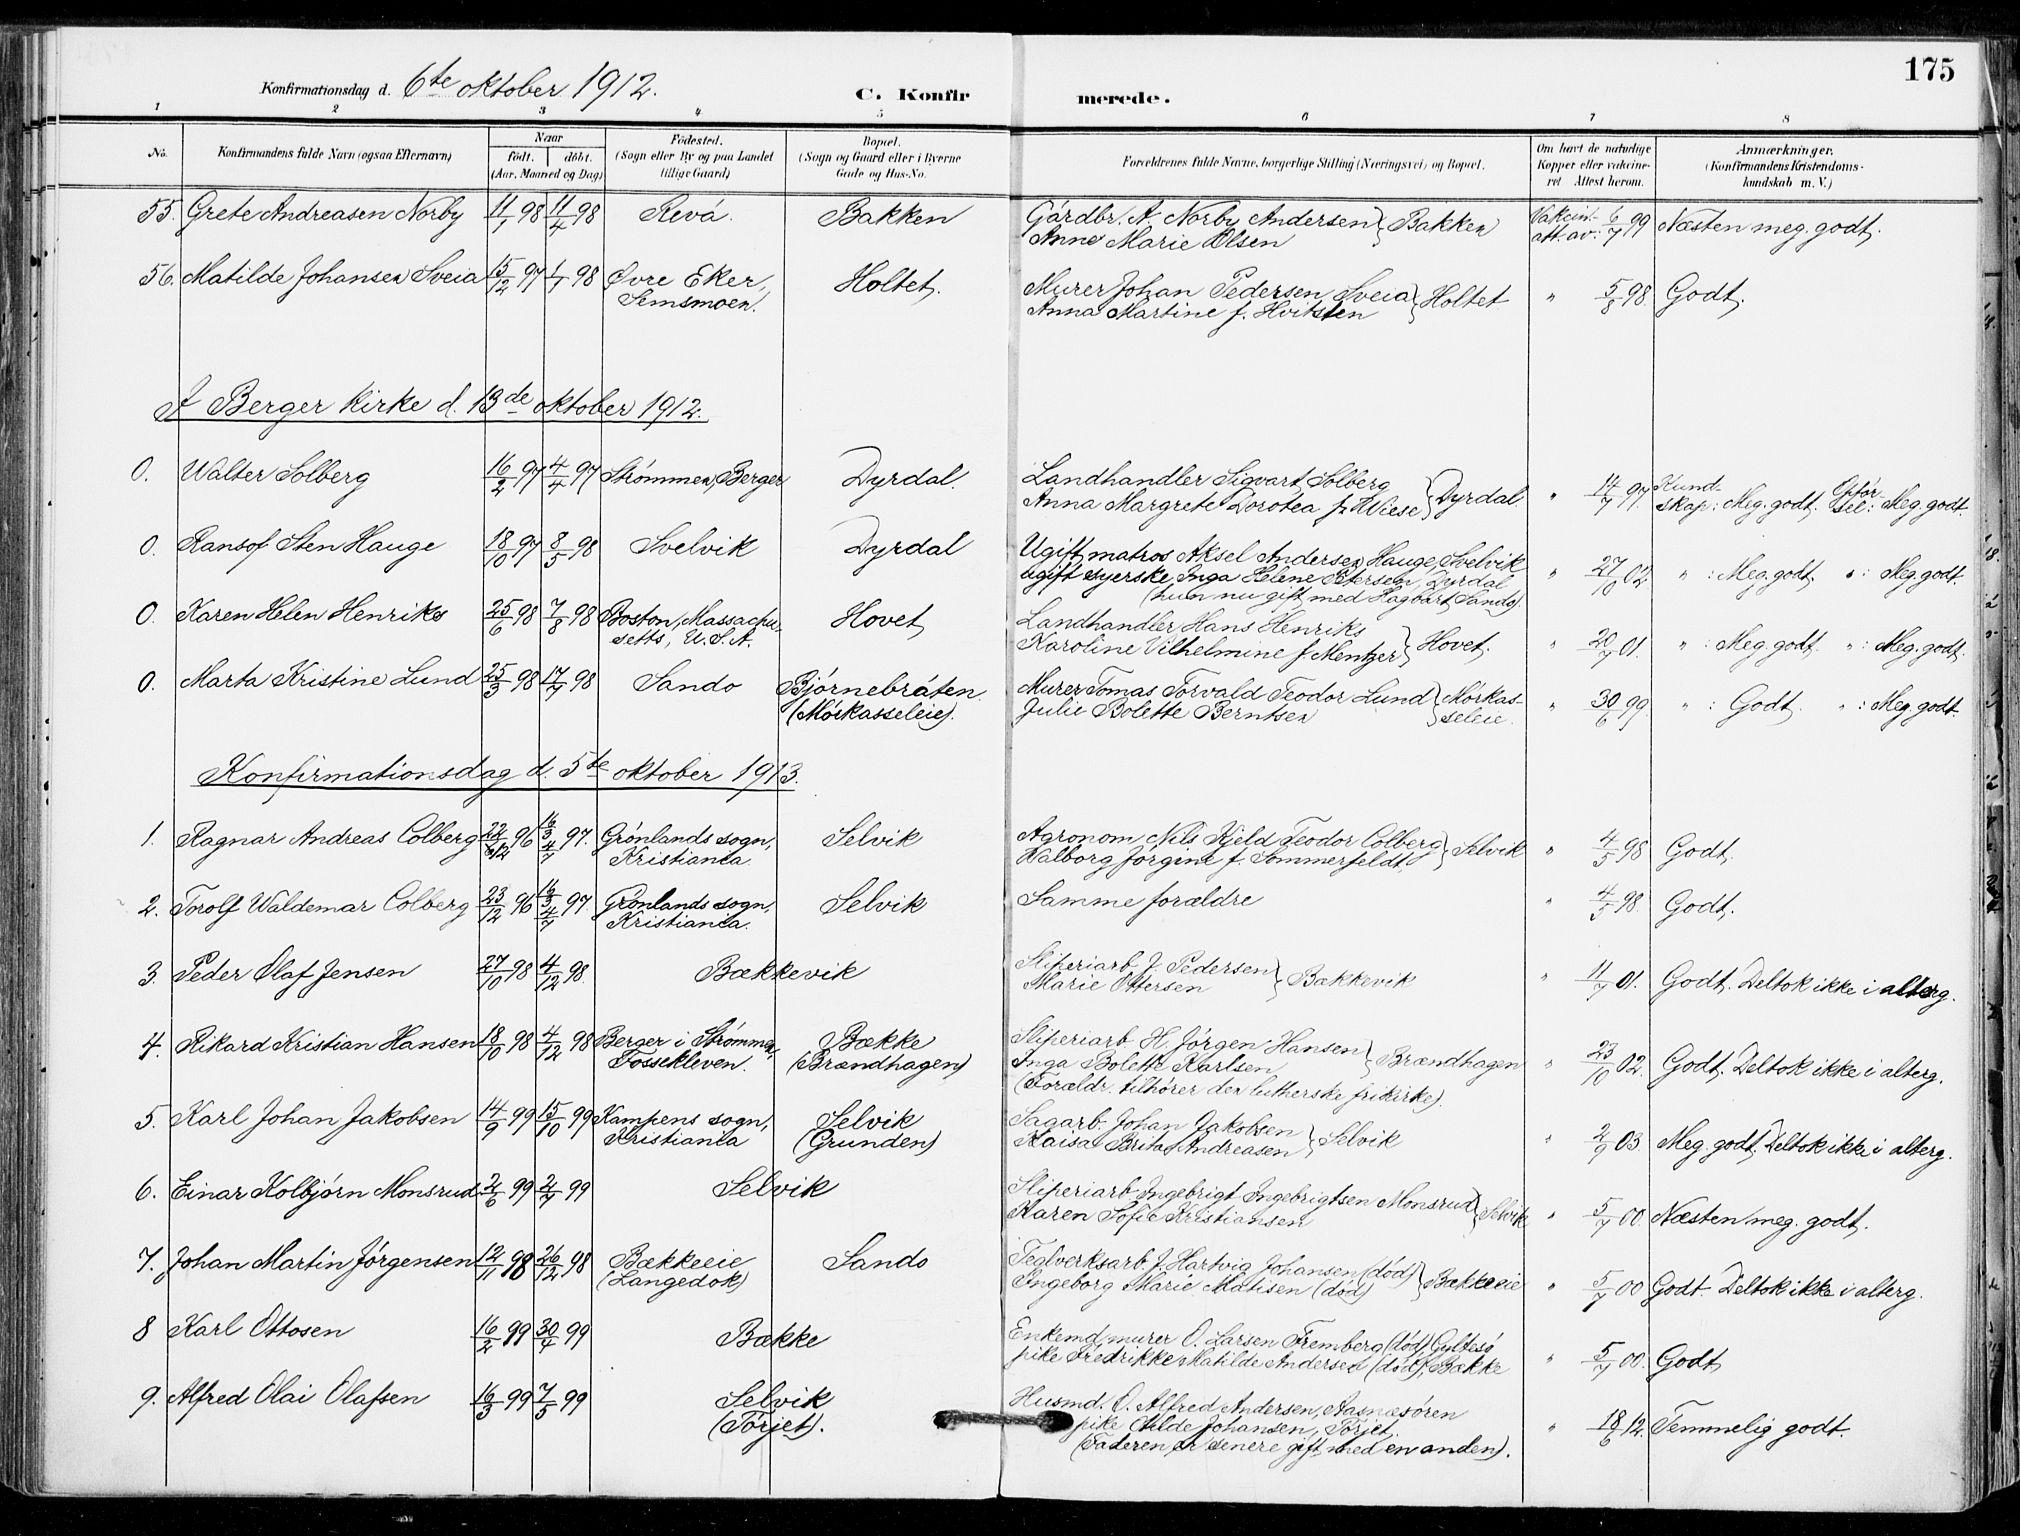 175
Konfirmationsdag d. 6te oktober 1912. C. Konfirmerede.
1 2 3 4 5 6 7 8
No. Konfirmandens fulde Navn (ogsaa Efternavn) Naar født. døbt. (Aar, Maaned og Dag) Fødested. (Sogn eller By og paa Landet tillige Gaard) Bopæl. (Sogn og Gaard eller i Byerne Gade og Hus-No. Forældrenes fulde Navne, borgerlige Stilling (Næringsvei) og Bopæl. Om havt de naturlige Kopper eller vaccineret. Attest herom. Anmærkninger. (Konfirmandens Kristendomskundskab m. V.)
55. Grete Andreasen Norby 11/1 98 11/4 98 Revå. Bakken Gårdbr. A. Norby Andersen } Bakken Vakcin. att. av: 6/7 99 Næsten meg. godt.
Anne Marie Olsen
56. Matilde Johansen Sveia 15/12 97 1/1 98 Øvre Eker, Holtet. Murer Johan Pedersen Sveia } Holtet " 5/8 98 Godt.
Semsmoen. Anna Martine f. Hvitsten
I Berger kirke d. 13de oktober 1912.
0. Walter Solberg 16/2 97 4/4 97 Strømmen, Berger Dyrdal. Landhandler Sigvart Solberg } Dyrdal. " 14/7 97. Kundskap: Meg. godt. Opførsel: Meg. godt.
Anna Margrete Dorotea f. Wiese
0. Ransof Sten Hauge 18/10 97 8/5 98 Svelvik Dyrdal Ugift matros Aksel Andersen Hauge, Svelvik " 27/10 02 " : Meg. godt. " : Meg. godt.
ugift syerske Inga Helene Petersen, Dyrdal
(hun nu gift med Hagbart Sando).
0. Karen Helen Henriks 25/6 98 7/8 98 Boston, Massachu- Hovet Landhandler Hans Henriks } Hovet. " 20/7 01. " : Meg. godt. " : Meg. godt.
setts, U.S.A. Karoline Vilhelmine f. Mentzer
0. Marta Kristine Lund 25/3 98 17/7 98 Sando Bjørnebråten Murer Tomas Torvald Teodor Lund } Mørkas- " 30/6 99 " : Godt. " : Meg. godt.
(Mørkasseleie). Julie Bolette Berntsen seleie.
Konfirmationsdag d. 5te oktober 1913.
1. Ragnar Andreas Colberg 22/12 96 16/3 4/7 97. Grønlands sogn, Selvik Agronom Nils Kjeld Teodor Colberg } Selvik " 4/5 98 Godt.
Kristiania. Walborg Jørgine f. Sommerfeldt.
2. Torolf Waldemar Colberg 23/12 96 16/3 4/7 97 Grønlands sogn, Selvik Samme forældre " 4/5 98. Godt.
Kristiania.
3. Peder Olaf Jensen 27/10 98 4/12 98. Bækkevik Sliperiarb. J. Pedersen } Bækkevik " 11/7 01. Godt. Deltok ikke i alterg.
Marie Ottersen
4. Rikard Kristian Hansen 18/10 98 4/12 98 Berger i Strømmen, Bække Sliperiarb. H. Jørgen Hansen } Brændhagen " 23/10 02. Godt. Deltok ikke i alterg.
Fossekleven. (Brændhagen) Inga Bolette Karlsen
(Forældr. tilhører den lutherske frikirke).
5. Karl Johan Jakobsen 14/9 99 15/10 99 Kampens sogn, Selvik Sagarb. Johan Jakobsen } Selvik " 2/9 03. Meg. godt. Deltok ikke i alterg.
Kristiania (Grunden) Kaisa Brita Andreasen
6. Einar Kolbjørn Monsrud 2/6 99 2/7 99 Selvik Sliperiarb. Ingebrigt Ingebrigtsen Monsrud } Selvik " 5/7 00. Næsten meg. godt.
Karen Sofie Kristiansen
7. Johan Martin Jørgensen 12/11 98 26/12 98 Bækkeeie Sando Teglverksarb. J. Hartvig Johansen (død) } Bækkeeie " 5/7 00 Godt. Deltok ikke i alterg.
(Langedok) Ingeborg Marie Matisen (død)
8 Karl Ottosen 16/2 99 30/4 99 Bække Enkemd. murer O. Larsen Fremberg (død) Gyltesø " 5/7 00. Godt
pike Fredrikke Matilde Andersen (død), Bække
9. Alfred Olai Olafsen 16/3 99 7/5 99 Selvik Husmd. O. Alfred Andersen, Aasnæsøren " 18/6 12. Temmelig godt.
(Torjet). pike Johansen, Torjet.
(Faderen er senere gift med en anden).